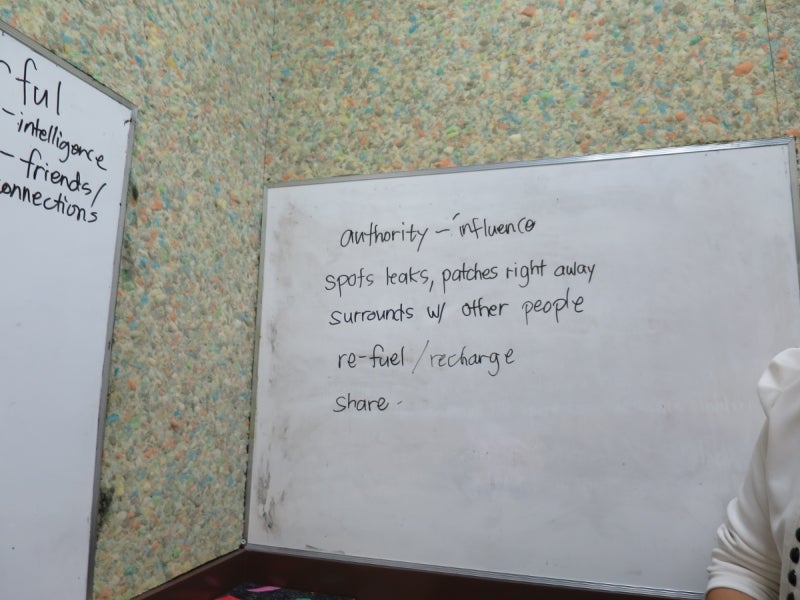 ful
-intelligence
- friends/
onnections
authority - influence
spots leaks, patches right away
surrounds w/ other people
re-fuel / recharge
share -